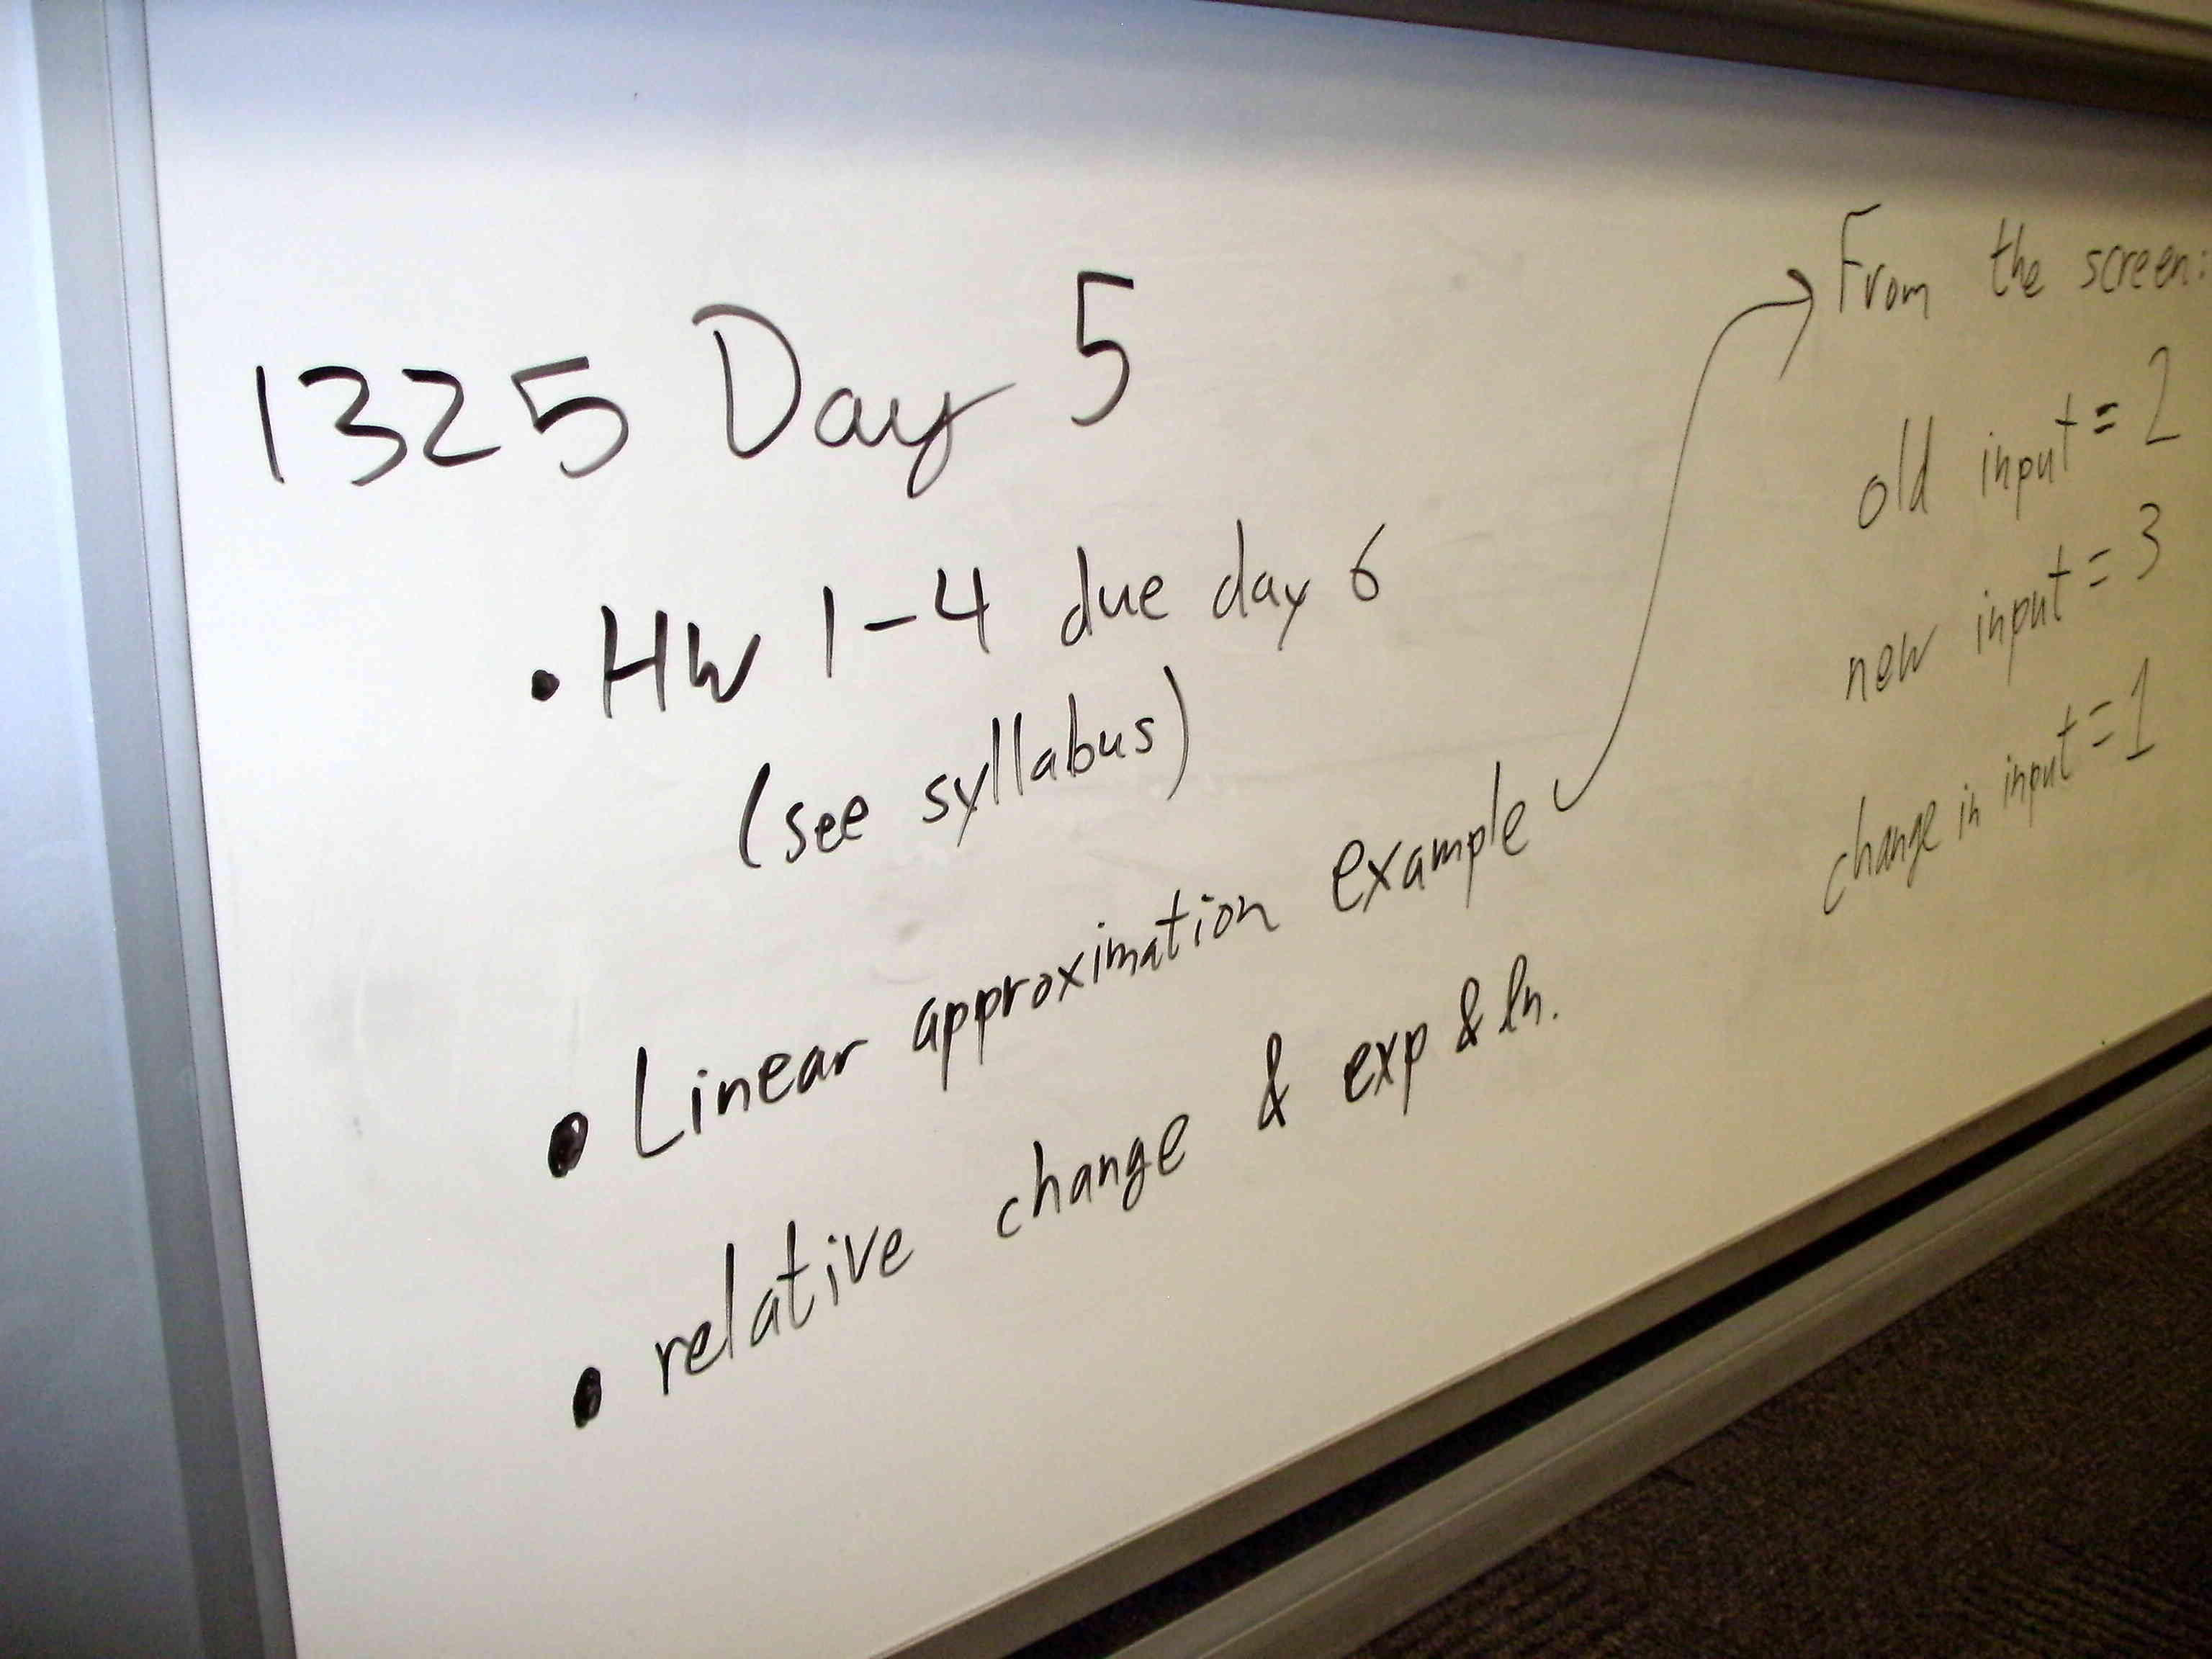 1325 Day 5
• HW 1-4 due day 6
(see syllabus)
• Linear approximation example
• relative change & exp & ln.
From the screen:
old input = 2
new input = 3
change in input = 1